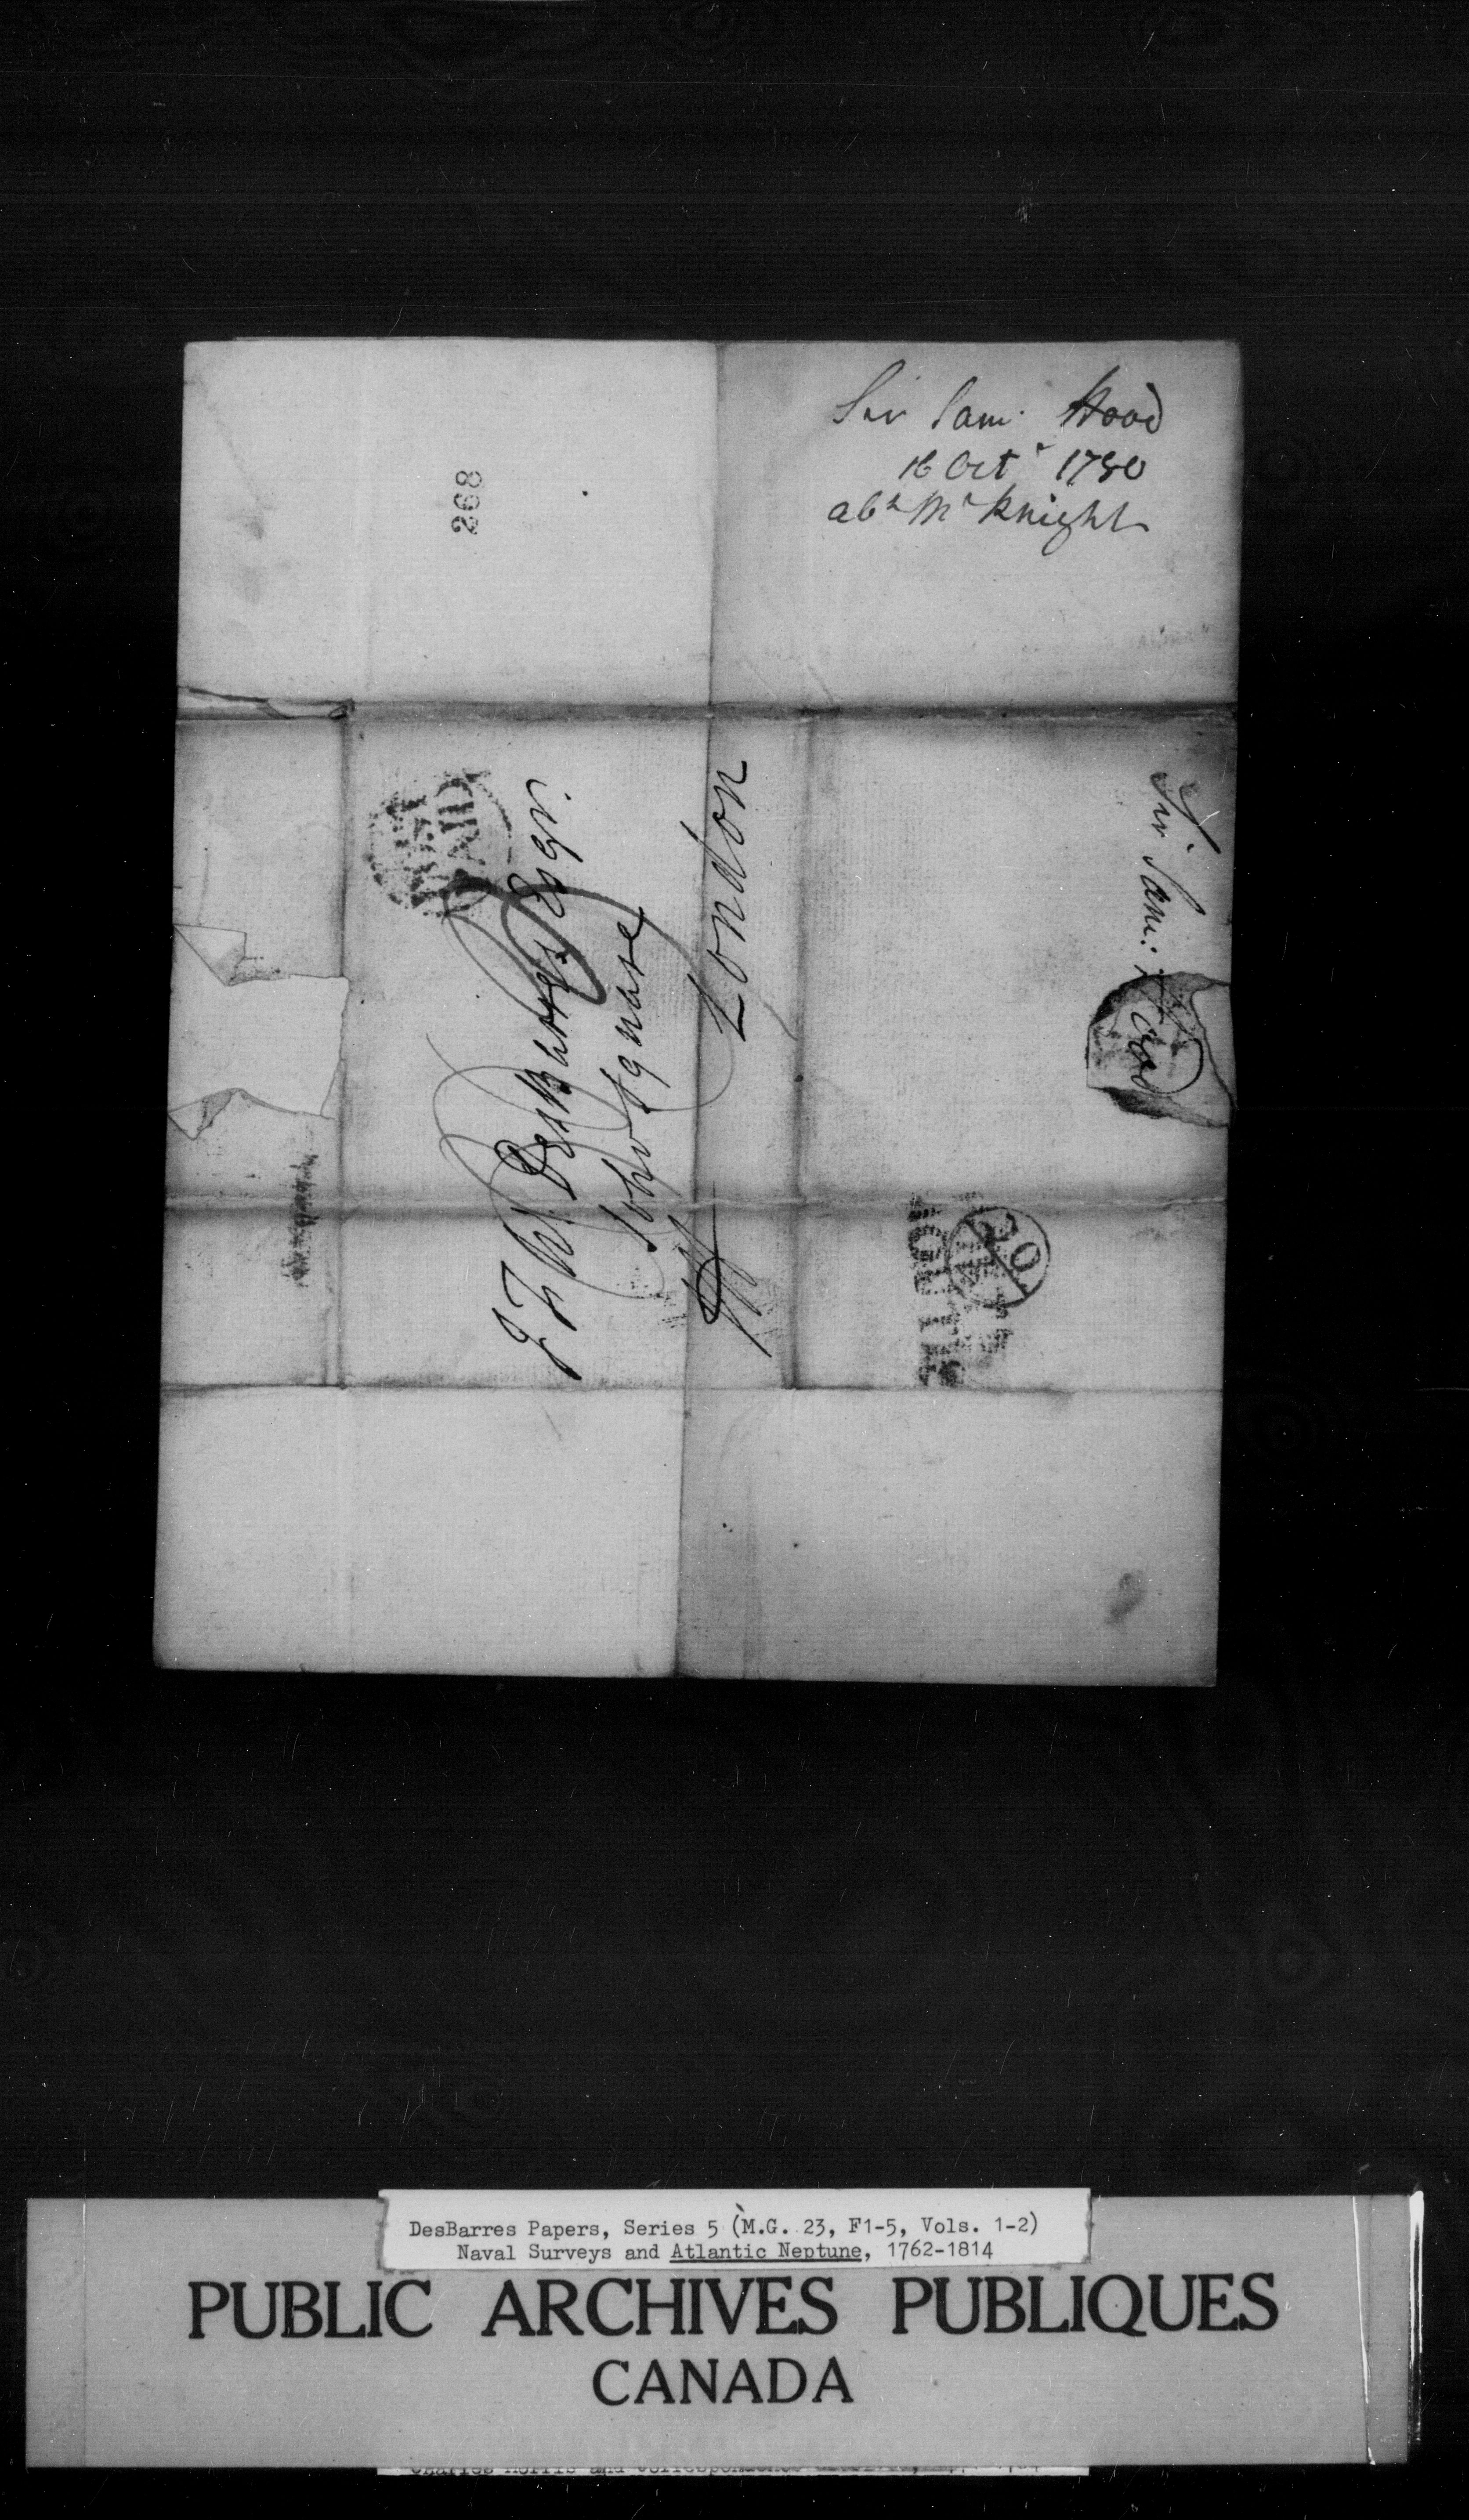 Sir Sam: Hood
16 Octr 1780
abt Mr Knight
268
J F W DesBarres Esqr.
Soho Square
London
Sir Sam: Hood
20
DesBarres Papers, Series 5 (M.G. 23, F1-5, Vols. 1-2)
Naval Surveys and Atlantic Neptune, 1762-1814
PUBLIC ARCHIVES PUBLIQUES
CANADA